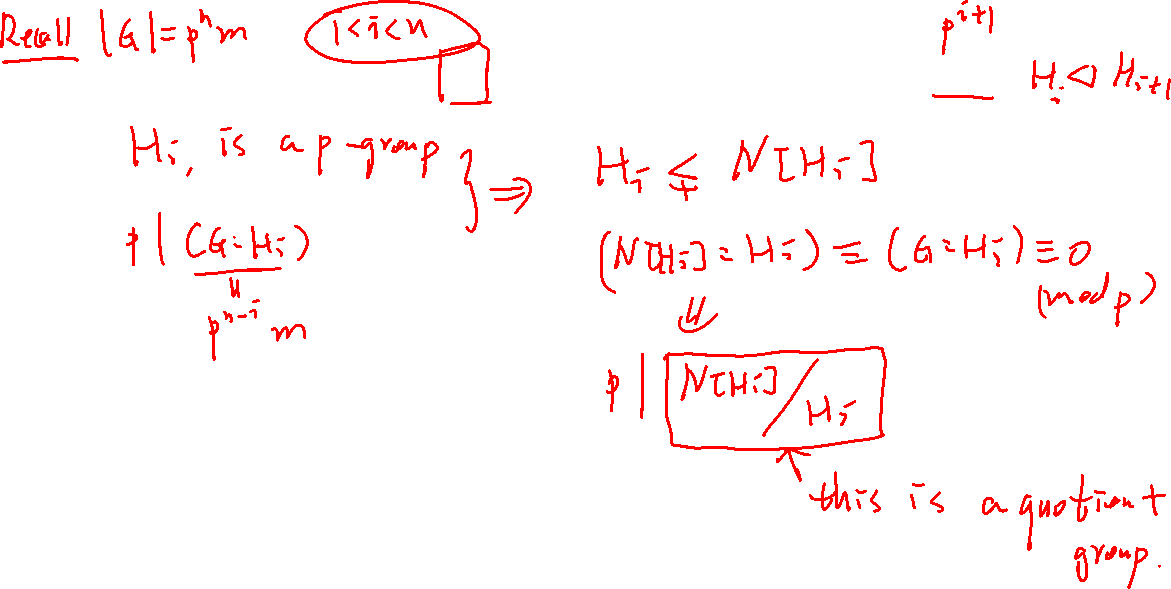 Recall |G| = pⁿm 1<i<n
pⁱ⁺¹
Hᵢ ◁ Hᵢ₊₁
Hᵢ, is a p-group } ⇒
p | (G:Hᵢ)
"
pⁿ⁻ⁱ m
Hᵢ ≨ N[Hᵢ]
(N[Hᵢ]:Hᵢ) ≡ (G:Hᵢ) ≡ 0
(mod p)
⇓
p | N[Hᵢ]/Hᵢ
↑
this is a quotient
group.